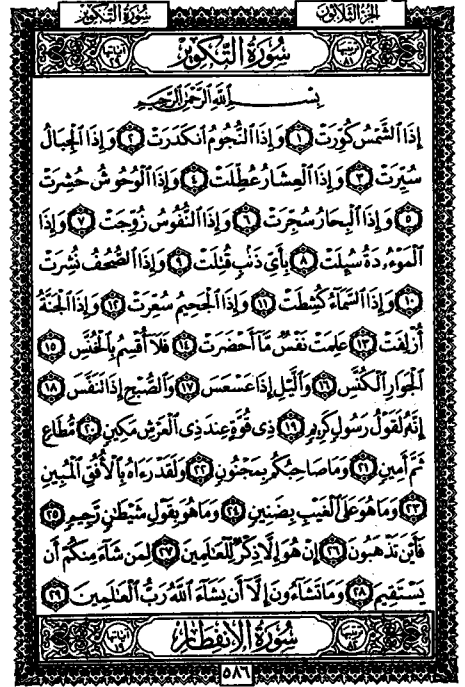 سُورَةُ التَّكْوِيرِ الجُزْءُ الثَّلَاثُونَ
آيَاتُهَا ٢٩ سُورَةُ التَّكْوِيرِ تَرْتِيبُهَا ٨١
بِسْمِ اللَّهِ الرَّحْمَٰنِ الرَّحِيمِ
إِذَا الشَّمْسُ كُوِّرَتْ ١ وَإِذَا النُّجُومُ انكَدَرَتْ ٢ وَإِذَا الْجِبَالُ
سُيِّرَتْ ٣ وَإِذَا الْعِشَارُ عُطِّلَتْ ٤ وَإِذَا الْوُحُوشُ حُشِرَتْ
٥ وَإِذَا الْبِحَارُ سُجِّرَتْ ٦ وَإِذَا النُّفُوسُ زُوِّجَتْ ٧ وَإِذَا
الْمَوْءُۥدَةُ سُئِلَتْ ٨ بِأَيِّ ذَنۢبٍ قُتِلَتْ ٩ وَإِذَا الصُّحُفُ نُشِرَتْ
١٠ وَإِذَا السَّمَآءُ كُشِطَتْ ١١ وَإِذَا الْجَحِيمُ سُعِّرَتْ ١٢ وَإِذَا الْجَنَّةُ
أُزْلِفَتْ ١٣ عَلِمَتْ نَفْسٌ مَّآ أَحْضَرَتْ ١٤ فَلَآ أُقْسِمُ بِالْخُنَّسِ ١٥
الْجَوَارِ الْكُنَّسِ ١٦ وَالَّيْلِ إِذَا عَسْعَسَ ١٧ وَالصُّبْحِ إِذَا تَنَفَّسَ ١٨
إِنَّهُۥ لَقَوْلُ رَسُولٍ كَرِيمٍ ١٩ ذِي قُوَّةٍ عِندَ ذِي الْعَرْشِ مَكِينٍ ٢٠ مُّطَاعٍ
ثَمَّ أَمِينٍ ٢١ وَمَا صَاحِبُكُم بِمَجْنُونٍ ٢٢ وَلَقَدْ رَءَاهُ بِالْأُفُقِ الْمُبِينِ
٢٣ وَمَا هُوَ عَلَى الْغَيْبِ بِضَنِينٍ ٢٤ وَمَا هُوَ بِقَوْلِ شَيْطَٰنٍ رَّجِيمٍ ٢٥
فَأَيْنَ تَذْهَبُونَ ٢٦ إِنْ هُوَ إِلَّا ذِكْرٌ لِّلْعَٰلَمِينَ ٢٧ لِمَن شَآءَ مِنكُمْ أَن
يَسْتَقِيمَ ٢٨ وَمَا تَشَآءُونَ إِلَّآ أَن يَشَآءَ اللَّهُ رَبُّ الْعَٰلَمِينَ ٢٩
آيَاتُهَا ١٩ سُورَةُ الِانفِطَارِ تَرْتِيبُهَا ٨٢
٥٨٦